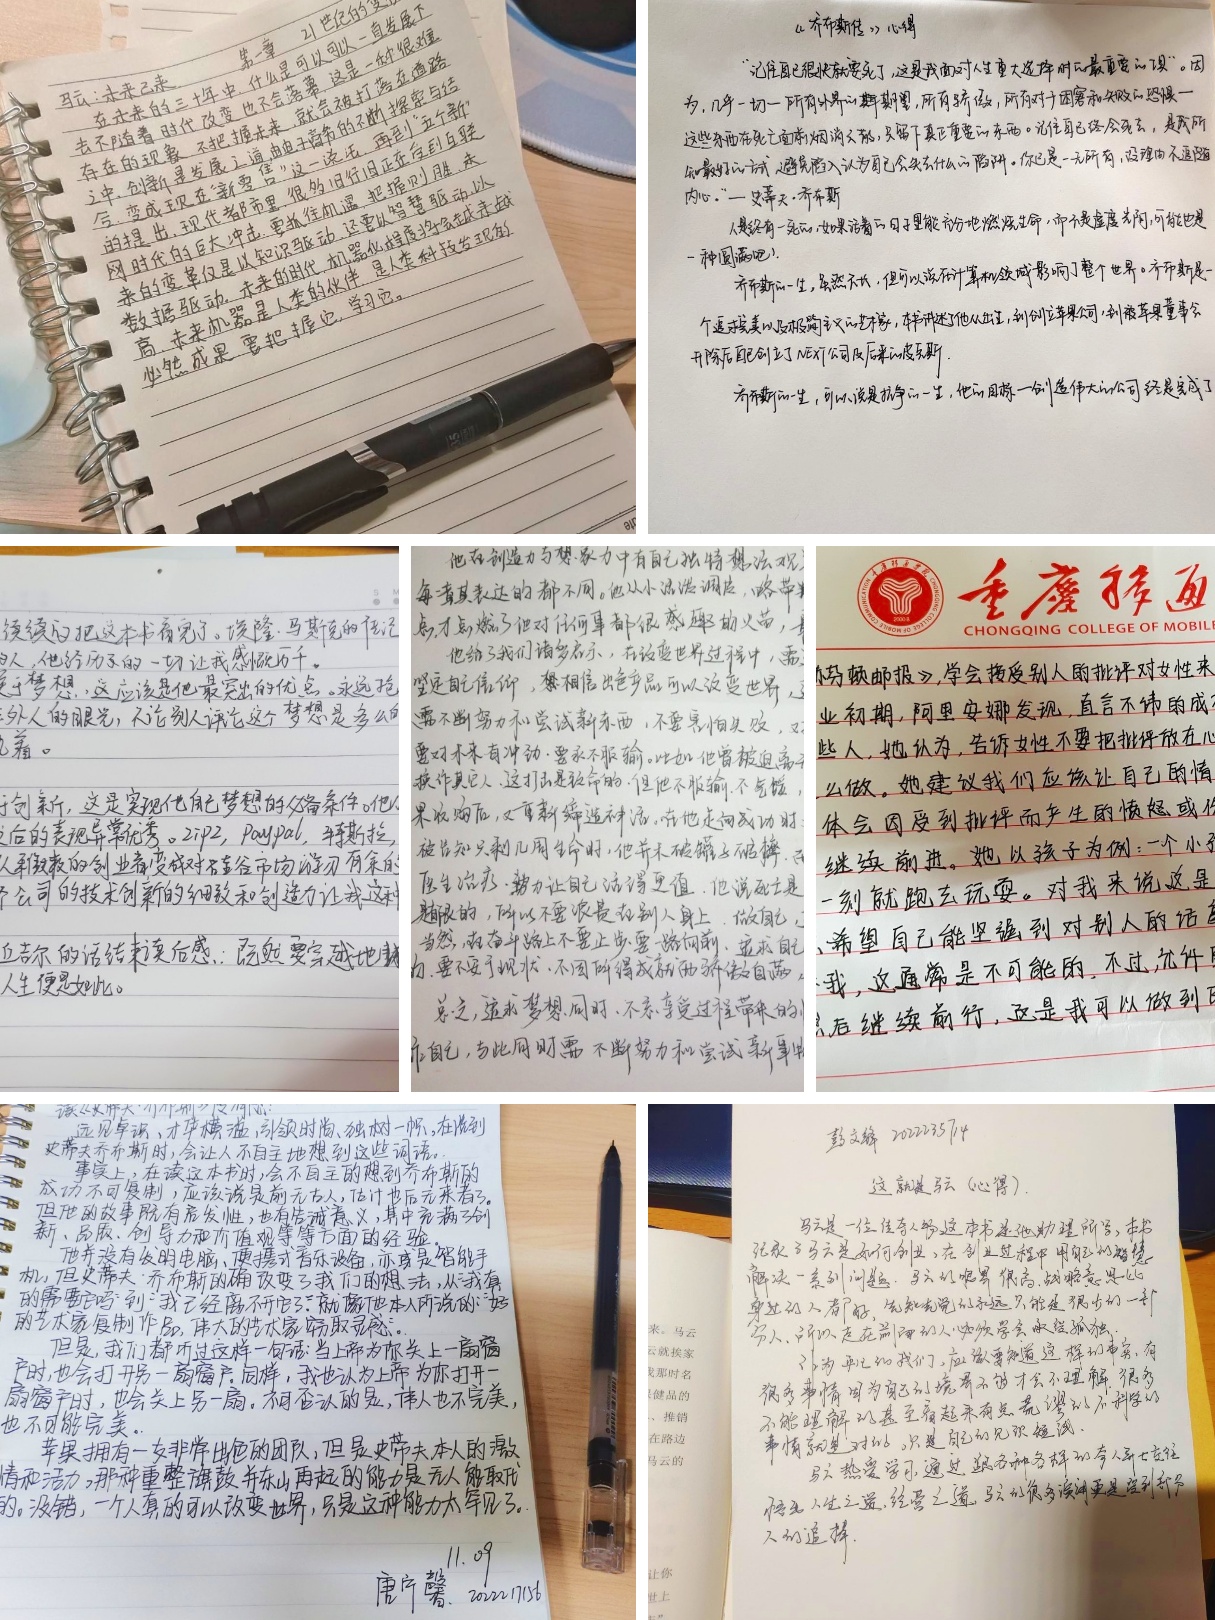 第一章 21世纪的变
马云:未来已来
在未来的三十年中,什么是可以可以一直发展下
去不随着时代改变也不会落幕,这是一种很难
存在的现象,不把握未来,就会被打落在道路
之中,创新是发展之道,由由于高布的不断探索与结
合,变成现在"新零售"这一说法,再到"五个新"
的提出,现代者都市里,很多旧行旧正在受到互联
网时代的巨大冲击,要抓住机遇,把握则胜,未
来的变革仅是以知识驱动,还要以智慧驱动,以
数据驱动,未来的时代,机器化程度将会越来越
高,未来机器是人类的伙伴,是人类科技发现的
必然成果,要把握它,学习它。
《乔布斯传》心得
"记住自己很快就要死了,这是我面对人生重大选择时的最重要的工具"。因
为,几乎一切——所有外界的期望,所有骄傲,所有对于困窘和失败的恐惧——
这些东西在死亡面前烟消云散,只留下真正重要的东西。记住自己终会死去,是我所
知最好的方式,避免陷入认为自己会失去什么的陷阱。你已是一无所有,没理由不追随
内心。"——史蒂夫·乔布斯
人是终有一死的,如果活着的日子里能充分地燃烧生命,而不是虚度光阴,可能也是
一种圆满吧!
乔布斯的一生,虽然不长,但可以说在计算机领域影响了整个世界。乔布斯是一
个追求完美以及极简主义的艺术家,本书讲述了他从出生,到创立苹果公司,到被苹果董事会
开除后自己创立了NEXT公司及后来的皮克斯.
乔布斯的一生,可以说是抗争的一生,他的目标——创造伟大的公司终是完成了
续续的把这本书看完了。埃隆·马斯克的传记
的人,他给历示的一切让我感慨万千。
于梦想,这应该是他最突出的优点。永远抱
外人的眼光,不论别人评论这个梦想是多么的
着。
于创新,这是实现他自己梦想的必备条件。他
后的表现异常优秀。Zip2, PayPal, 特斯拉,
从柔软的创业者变成对硅谷市场游刃有余的
个公司的技术创新的细致和创造力让我这种
丘吉尔的话结束读后感:既然要穿越地狱
人生便是如此。
他在创造力与想象力中有自己独特想法观
每看其表达的都不同。他从小混混调皮,略带
点,才点燃了他对任何事都很感兴趣的火苗,
他给了我们诸多启示,在改变世界过程中,需
坚定自己信仰,想相信出色产品可以改变世界,
需不断努力和尝试新东西,不要害怕失败,
要对未来有冲动.要永不服输.比如他曾被迫离
换作其它人,这打击是致命的.但他不服输.不气馁,
果收购后,又重新缔造神话.在他走向成功时
被告知只剩几周生命时,他并未破罐子破摔,
医生治疗.努力让自己活得更值.他说死亡是
有限的,所以不要浪费在别人身上.做自己,
当然,在奋斗路上不要止步.要一路向前.追求自己
力.要不安于现状.不因所得成就而骄傲自满
总之,追求梦想同时,不忘享受过程带来的
自己,与此同时需不断努力和尝试新事物
重庆移通
CHONGQING COLLEGE OF MOBILE
顿邮报》,学会接受别人的批评对女性来
业初期,阿里安娜发现,直言不伟的成
些人,她认为,告诉女性不要把批评放在心
么做。她建议我们应该让自己的情
体会因受到批评而产生的愤怒或
继续前进。她以孩子为例:一个小孩
一刻就跑去玩耍。对我来说这是
希望自己能坚强到对别人的话
我,这通常是不可能的,不过,允许
后继续前行,这是我可以做到
读《史蒂夫·乔布斯》
远见卓识,才华横溢,引领时尚,独树一帜,在谈到
史蒂夫乔布斯时,会让人不自主地想到这些词语。
事实上,在读这本书时,会不自主的想到乔布斯的
成功不可复制,应该说是前无古人,估计也后无来者了。
但他的故事既有启发性,也有告诫意义,其中充满了创
新、品质、创导力和价值观等等方面的经验。
他并没有发明电脑、便携式音乐设备,亦或是智能手
机,但史蒂夫·乔布斯的确改变了我们的想法,从"我有
的需要它吗"到"我已经离不开它了",就像他本人所说的:"好
的艺术家复制作品,伟大的艺术家窃取灵感"。
但是,我们都听过这样一句话:当上帝为你关上一扇窗
户时,也会打开另一扇窗户.同样,我也认为上帝为你打开一
扇窗户时,也会关上另一扇。不可否认的是,伟人也不完美,
也不可能完美。
苹果拥有一支非常出色的团队,但是史蒂夫本人的激
情和活力,那种重整旗鼓并东山再起的能力是无人能取代
的。没错,一个人真的可以改变世界,只是这种能力太罕见了。
11.09
唐宁馨 2022217156
彭文 202223514
这就是马云(心得).
马云是一位传奇人物,这本书是他助理所写,本书
记录了马云是如何创业,在创业过程中用自己的智慧
解决一系列问题.马云的眼界很高,战略意思比
身边的人都好,先知先觉的永远只能是很少的一部
分人,所以走在前面的人必须学会承受孤独.
作为平凡的我们,应该要知道这样的事实,有
很多事情因为自己的境界不够才会不理解,很多
不能理解的甚至看起来有点荒谬的不科学的
事情就是对的,只是自己的见识短浅.
马云热爱学习,通过跟各种各样的奇人异士交往
悟出人生之道,经营之道.马云的很多演讲更是受到
人的追捧.
来。马云
云就挨家
成那时名
保健品的
、推销
在路边
马云的
让你
世上